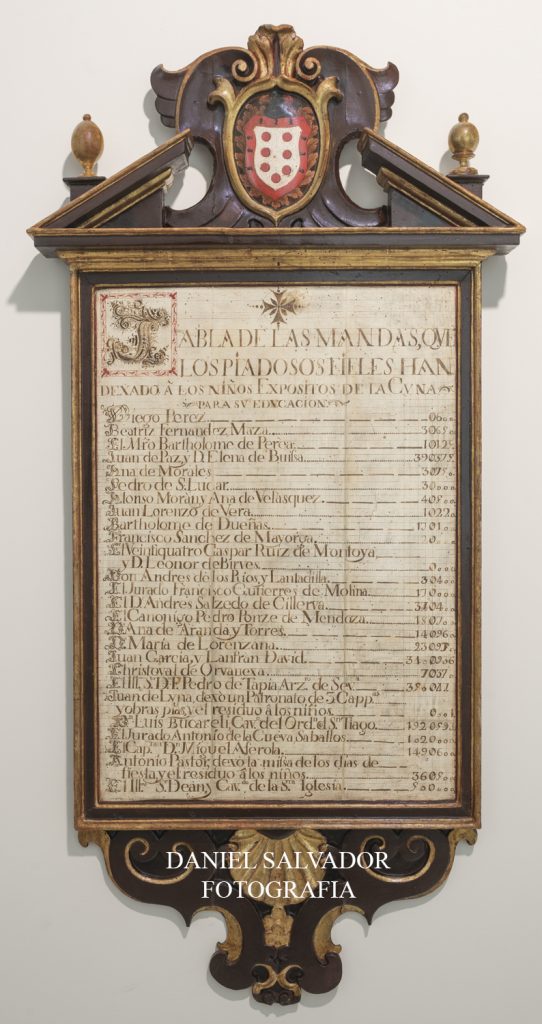 TABLA DE LAS MANDAS, QUE
LOS PIADOSOS FIELES HAN
DEXADO À LOS NIÑOS EXPOSITOS DE LA CVNA
PARA SV EDVCACION
Diego Perez
Beatriz Fernandez Maza
El Mro Bartholome de Perea
Juan de Paz y D. Elena de Buisa
Ana de Morales
Pedro de S. Lucar
Alonso Moran y Ana de Velasquez
Juan Lorenzo de Vera
Bartholome de Dueñas
Francisco Sanchez de Mayorga
El Veintiquatro Gaspar Ruiz de Montoya
y D. Leonor de Birves
Don Andres de los Rios y Lantadilla
El Jurado Francisco Gutierres de Molina
El D. Andres Salzedo de Cillerva
El Canonigo Pedro Ponze de Mendoza
Dª Ana de Aranda y Torres
Dª Maria de Lorenzana
Juan Garcia, y Lanfran David
Christoval de Orvanexa
El Ill. S. D. F. Pedro de Tapia Arz. de Sev.
Juan de Lyna, dexo un Patronato de 3 Capp.
y obras pias, y el residuo à los niños
Dn Luis Bucareli Cav. del Ord. d S. Tiago
El Jurado Antonio de la Cueva Saballos
El Cap. D. Miguel Alerola
Antonio Pastor, dexo la misa de los dias de
fiesta, y el residuo à los niños
El Ill. S. Dean y Cav. de la S. Iglesia
DANIEL SALVADOR
FOTOGRAFIA